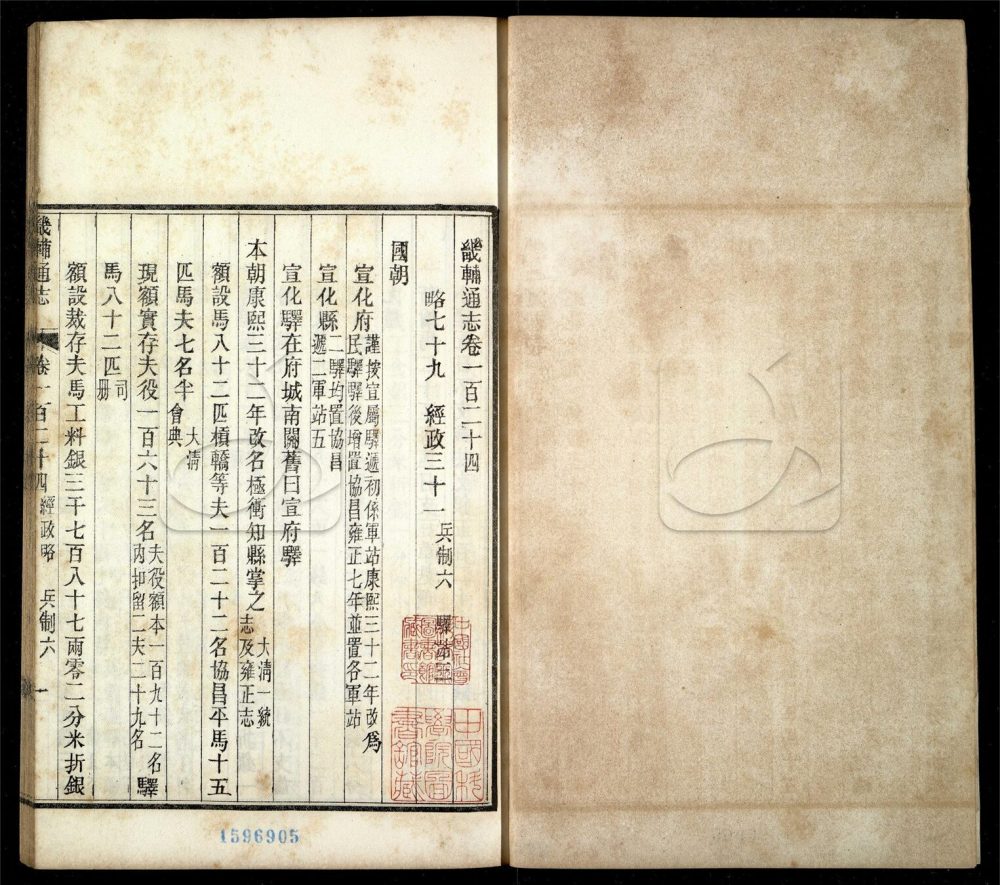 畿輔通志卷一百二十四
略七十九　經政三十一　兵制六　驛站五
國朝
宣化府謹按宣屬驛遞初係軍站康熙三十二年改爲
民驛驛後增置協昌雍正七年並置各軍站
宣化縣二驛均置協昌
遞二軍站五
宣化驛在府城南關舊曰宣府驛
本朝康熙三十二年改名極衝知縣掌之大清一統
志及雍正志
額設馬八十二匹槓轎等夫一百二十二名協昌平馬十五
匹馬夫七名半大清
會典
現額實存夫役一百六十三名夫役額本一百九十二名驛
內扣留二夫二十九名
馬八十二匹司
册
額設裁存夫馬工料銀三千七百八十七兩零二分米折銀
畿輔通志　卷一百二十四　經政略　兵制六　一
中國社會
圖書館
藏書印
中國科
學院圖
書館藏
1596905